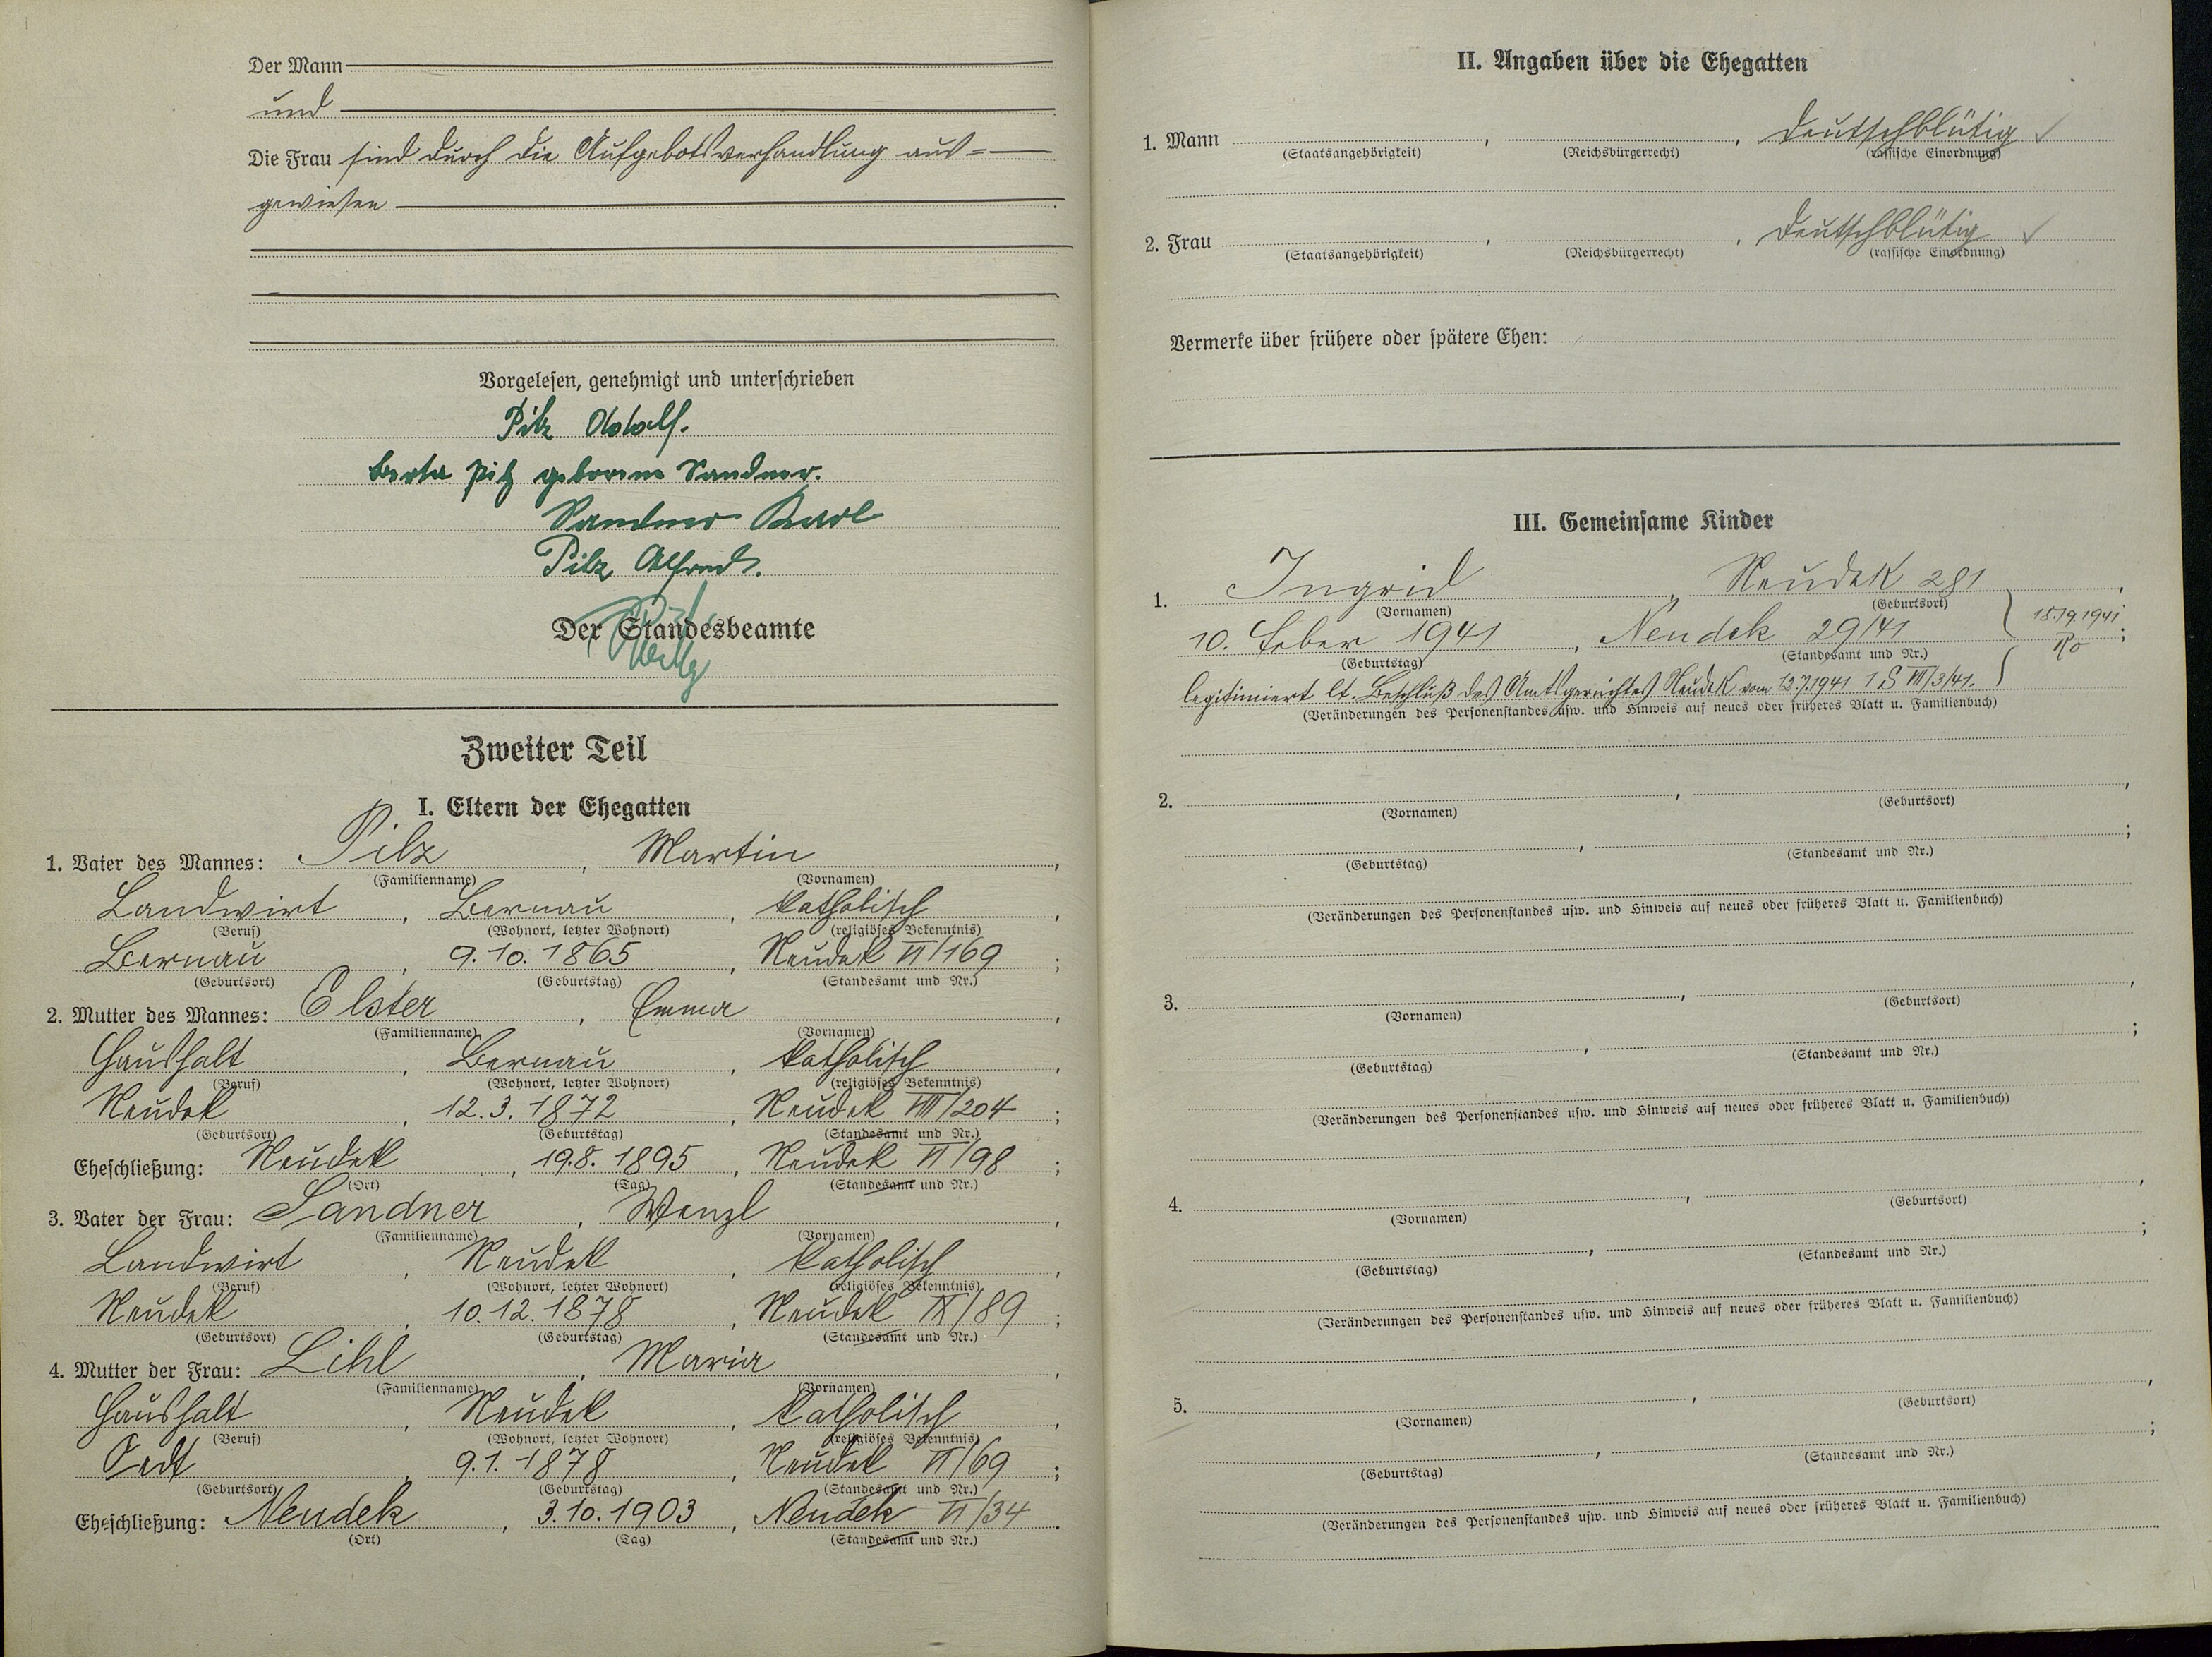 Der Mann
und
Die Frau sind durch die Aufgebotsverhandlung aus=
gewiesen
Vorgelesen, genehmigt und unterschrieben
Pilz Adolf.
Berta Pilz geborene Sandner.
Sandner Karl
Pilz Alfred.
Der Standesbeamte
Zweiter Teil
I. Eltern der Ehegatten
1. Vater des Mannes: Pilz, Martin,
(Familienname) (Vornamen)
Landwirt, Bernau, katholisch,
(Beruf) (Wohnort, letzter Wohnort) (religiöses Bekenntnis)
Bernau, 9.10.1865, Neudek VI/169;
(Geburtsort) (Geburtstag) (Standesamt und Nr.)
2. Mutter des Mannes: Elster, Emma,
(Familienname) (Vornamen)
Haushalt, Bernau, katholisch,
(Beruf) (Wohnort, letzter Wohnort) (religiöses Bekenntnis)
Neudek, 12.3.1872, Neudek VIII/204;
(Geburtsort) (Geburtstag) (Standesamt und Nr.)
Eheschließung: Neudek, 19.8.1895, Neudek VI/98;
(Ort) (Tag) (Standesamt und Nr.)
3. Vater der Frau: Sandner, Wenzl,
(Familienname) (Vornamen)
Landwirt, Neudek, katholisch,
(Beruf) (Wohnort, letzter Wohnort) (religiöses Bekenntnis)
Neudek, 10.12.1878, Neudek IX/89;
(Geburtsort) (Geburtstag) (Standesamt und Nr.)
4. Mutter der Frau: Lihl, Maria,
(Familienname) (Vornamen)
Haushalt, Neudek, katholisch,
(Beruf) (Wohnort, letzter Wohnort) (religiöses Bekenntnis)
Oedt, 9.1.1878, Neudek VI/69;
(Geburtsort) (Geburtstag) (Standesamt und Nr.)
Eheschließung: Neudek, 3.10.1903, Neudek VI/34.
(Ort) (Tag) (Standesamt und Nr.)
II. Angaben über die Ehegatten
1. Mann , , deutschblütig ✓
(Staatsangehörigkeit) (Reichsbürgerrecht) (rassische Einordnung)
2. Frau , , deutschblütig ✓
(Staatsangehörigkeit) (Reichsbürgerrecht) (rassische Einordnung)
Vermerke über frühere oder spätere Ehen:
III. Gemeinsame Kinder
1. Ingrid, Neudek 281,
(Vornamen) (Geburtsort)
10. Feber 1941, Neudek 29/41; 18.9.1941
(Geburtstag) (Standesamt und Nr.)
legitimiert lt. Beschluß des Amtsgerichtes Neudek vom 12.7.1941 1 S VIII/3/41.
(Veränderungen des Personenstandes usw. und Hinweis auf neues oder früheres Blatt u. Familienbuch)
2. , ,
(Vornamen) (Geburtsort)
, ;
(Geburtstag) (Standesamt und Nr.)
(Veränderungen des Personenstandes usw. und Hinweis auf neues oder früheres Blatt u. Familienbuch)
3. , ,
(Vornamen) (Geburtsort)
, ;
(Geburtstag) (Standesamt und Nr.)
(Veränderungen des Personenstandes usw. und Hinweis auf neues oder früheres Blatt u. Familienbuch)
4. , ,
(Vornamen) (Geburtsort)
, ;
(Geburtstag) (Standesamt und Nr.)
(Veränderungen des Personenstandes usw. und Hinweis auf neues oder früheres Blatt u. Familienbuch)
5. , ,
(Vornamen) (Geburtsort)
, ;
(Geburtstag) (Standesamt und Nr.)
(Veränderungen des Personenstandes usw. und Hinweis auf neues oder früheres Blatt u. Familienbuch)